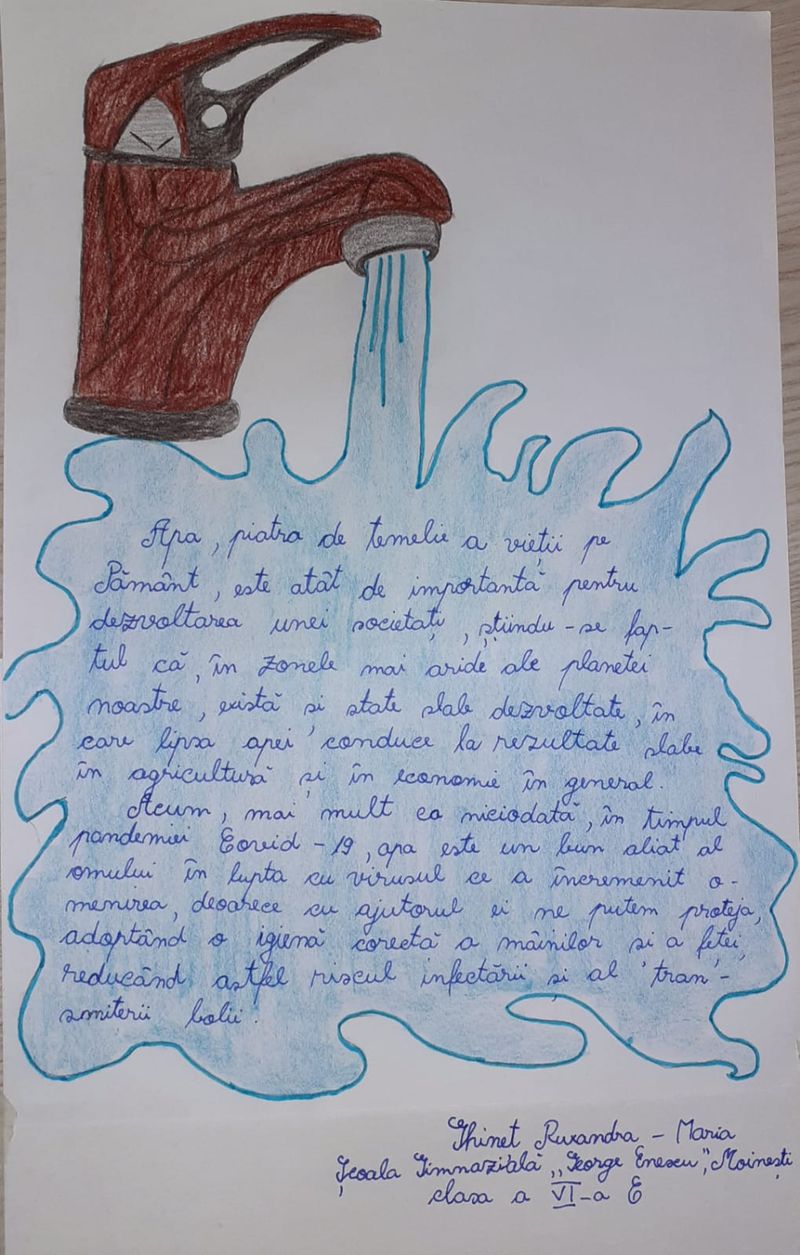 Apa, piatra de temelie a vieții pe
Pământ, este atât de importantă pentru
dezvoltarea unei societați, știindu-se fap-
tul că, în zonele mai aride ale planetei
noastre, există și state slab dezvoltate, în
care lipsa apei conduce la rezultate slabe
în agricultură și în economie în general.
Acum, mai mult ca niciodată, în timpul
pandemiei Covid-19, apa este un bun aliat al
omului în lupta cu virusul ce a încremenit o-
menirea, deoarece cu ajutorul ei ne putem proteja,
adoptând o igienă corectă a mâinilor si a feței,
reducând astfel riscul infectării și al tran-
smiterii bolii.
Ghineț Ruxandra - Maria
Școala Gimnazială ,,George Enescu", Moinești
clasa a VI-a E